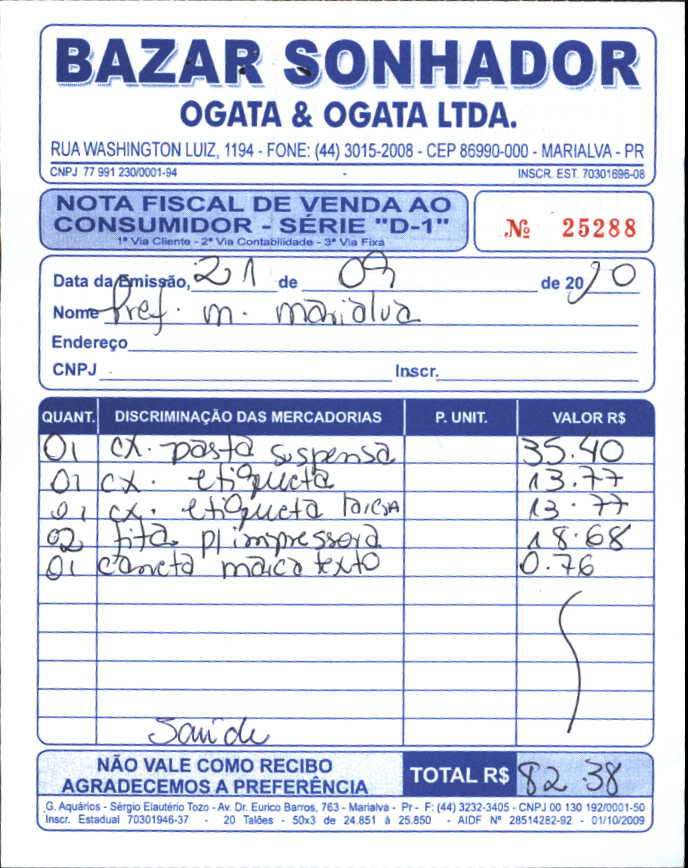 BAZAR SONHADOR
OGATA & OGATA LTDA.
RUA WASHINGTON LUIZ, 1194 - FONE: (44) 3015-2008 - CEP 86990-000 - MARIALVA - PR
CNPJ 77 991 230/0001-94 - INSCR. EST. 70301696-08
NOTA FISCAL DE VENDA AO
CONSUMIDOR - SÉRIE "D-1"
1ª Via Cliente - 2ª Via Contabilidade - 3ª Via Fixa
Nº 25288
Data da Emissão, 21 de 09 de 2010
Nome Pref. m. marialva
Endereço
CNPJ Inscr.
QUANT. DISCRIMINAÇÃO DAS MERCADORIAS P. UNIT. VALOR R$
01 cx. pasta suspensa 35.40
01 cx. etiqueta 13.77
01 cx. etiqueta 13.77
02 fita p/ impressora 18.68
01 caneta marca texto 0.76
Saúde
NÃO VALE COMO RECIBO
AGRADECEMOS A PREFERÊNCIA
TOTAL R$ 82.38
G. Aquários - Sérgio Elautério Tozo - Av. Dr. Eurico Barros, 763 - Marialva - Pr - F: (44) 3232-3405 - CNPJ 00 130 192/0001-50
Inscr. Estadual 70301946-37 - 20 Talões - 50x3 de 24.851 à 25.850 - AIDF Nº 28514282-92 - 01/10/2009